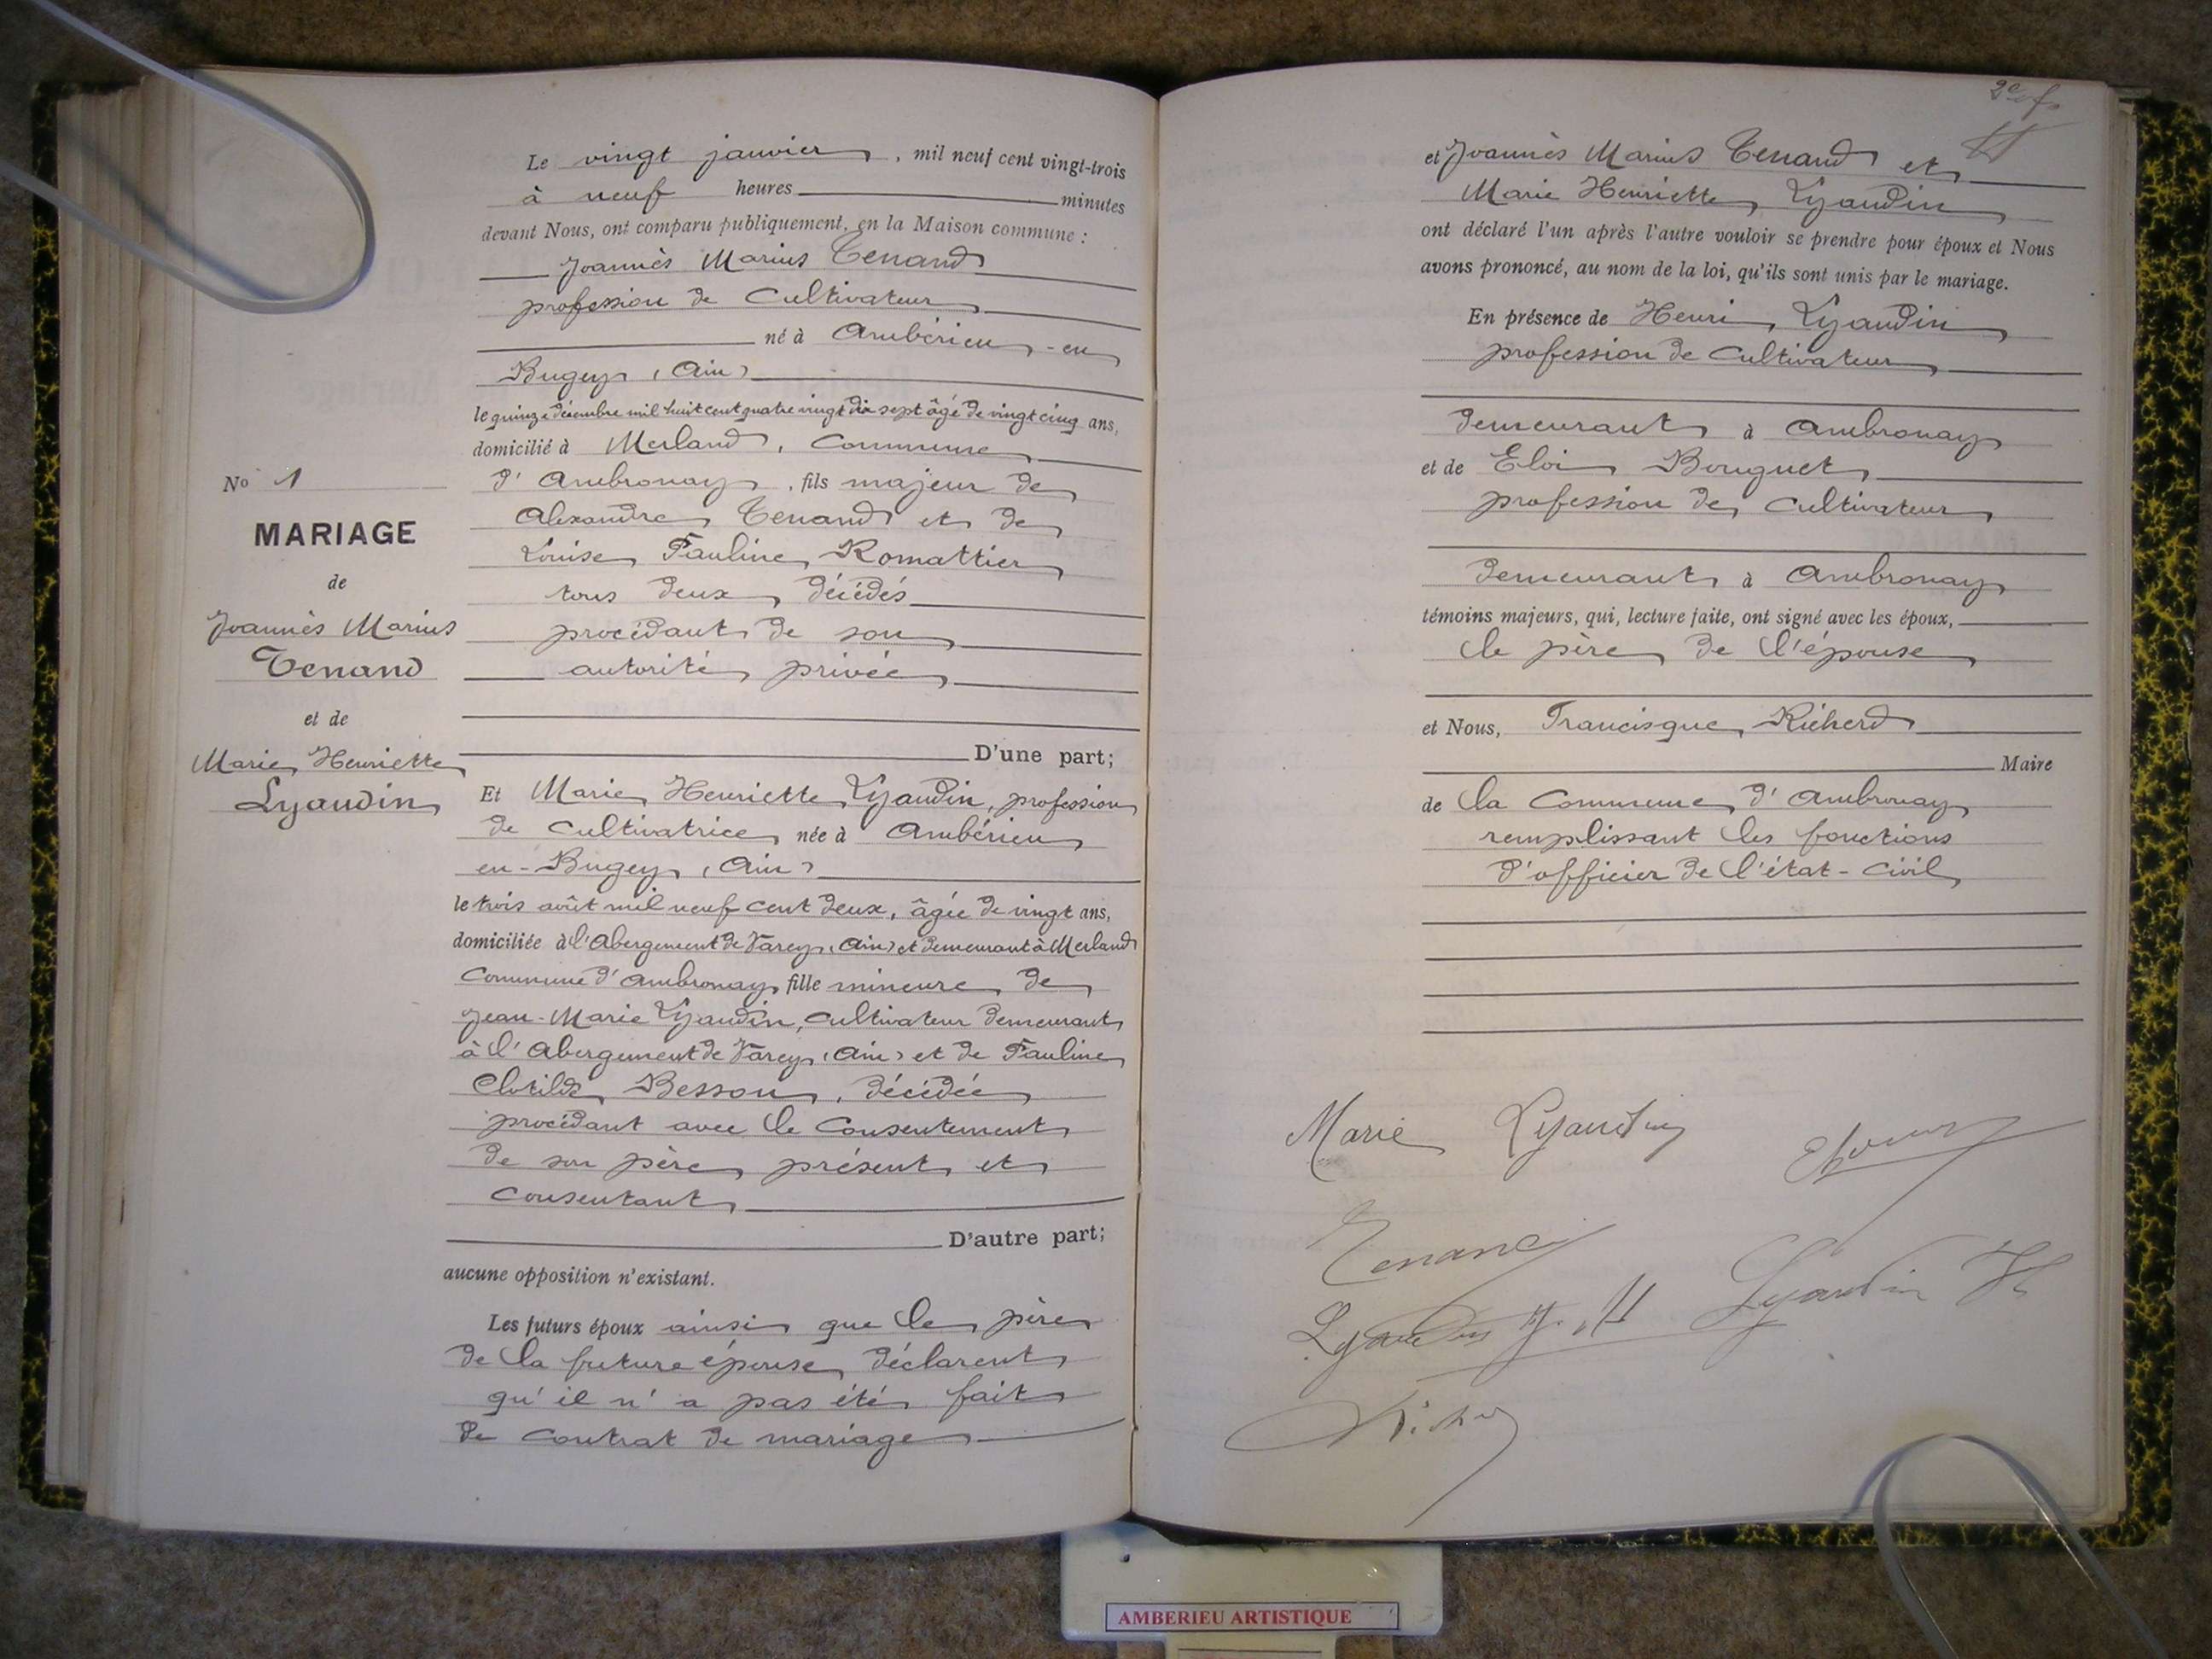 Le vingt janvier, mil neuf cent vingt-trois
à neuf heures minutes
devant Nous, ont comparu publiquement, en la Maison commune :
Joannès Marius Tenand
profession de Cultivateur
né à Ambérieu-en
Bugey (Ain)
le quinze décembre mil huit cent quatre vingt dix sept âgé de vingt cinq ans,
domicilié à Merland, Commune
d'Ambronay, fils majeur de
Alexandre Tenand et de
Louise Pauline Romattier
tous deux décédés
procédant de son
autorité privée
D'une part;
No 1
MARIAGE
de
Joannès Marius
Tenand
et de
Marie Henriette
Lyaudin
Et Marie Henriette Lyaudin, profession
de Cultivatrice née à Ambérieu
en-Bugey (Ain)
le trois août mil neuf cent deux, âgée de vingt ans,
domiciliée à l'Abergement de Varey (Ain) et demeurant à Merland
Commune d'Ambronay, fille mineure de
Jean-Marie Lyaudin, Cultivateur demeurant
à l'Abergement de Varey (Ain) et de Pauline
Clotilde Besson, décédée
procédant avec le Consentement
de son père présent et
Consentant
D'autre part;
aucune opposition n'existant.
Les futurs époux ainsi que le père
de la future épouse déclarent
qu'il n'a pas été fait
de Contrat de mariage
et Joannès Marius Tenand et
Marie Henriette Lyaudin
ont déclaré l'un après l'autre vouloir se prendre pour époux et Nous
avons prononcé, au nom de la loi, qu'ils sont unis par le mariage.
En présence de Henri Lyaudin
profession de Cultivateur
demeurant à Ambronay
et de Eloi Bouguet
profession de Cultivateur
demeurant à Ambronay
témoins majeurs, qui, lecture faite, ont signé avec les époux,
le père de l'épouse
et Nous, Francisque Richerd
Maire
de la Commune d'Ambronay
remplissant les fonctions
d'officier de l'état-Civil
Marie Lyaudin
Tenand
Lyaudin J. M Lyaudin H
AMBERIEU ARTISTIQUE